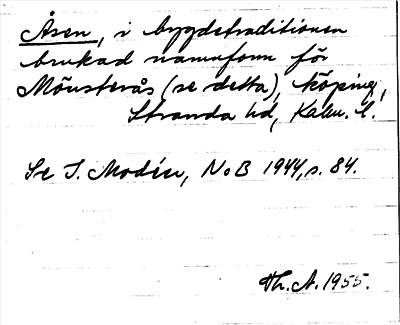 Åsen, i bygdetraditionen
brukad namnform för
Mönsterås (se detta), köping,
Stranda hd, Kalm. l.
Se I. Modéer, NoB 1944, s. 84.
Th. A. 1955.